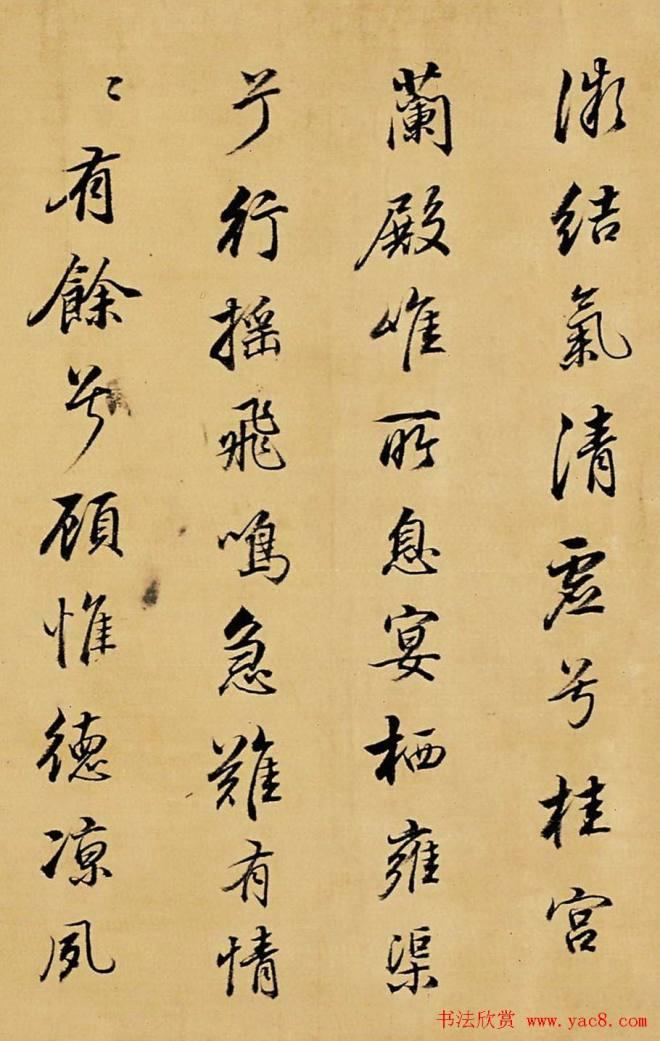 微結氣清虛兮桂宮
蘭殿唯所息宴栖雍渠
兮行搖飛鳴急難有情
〻有餘兮顧惟德凉夙
书法欣赏 www.yac8.com